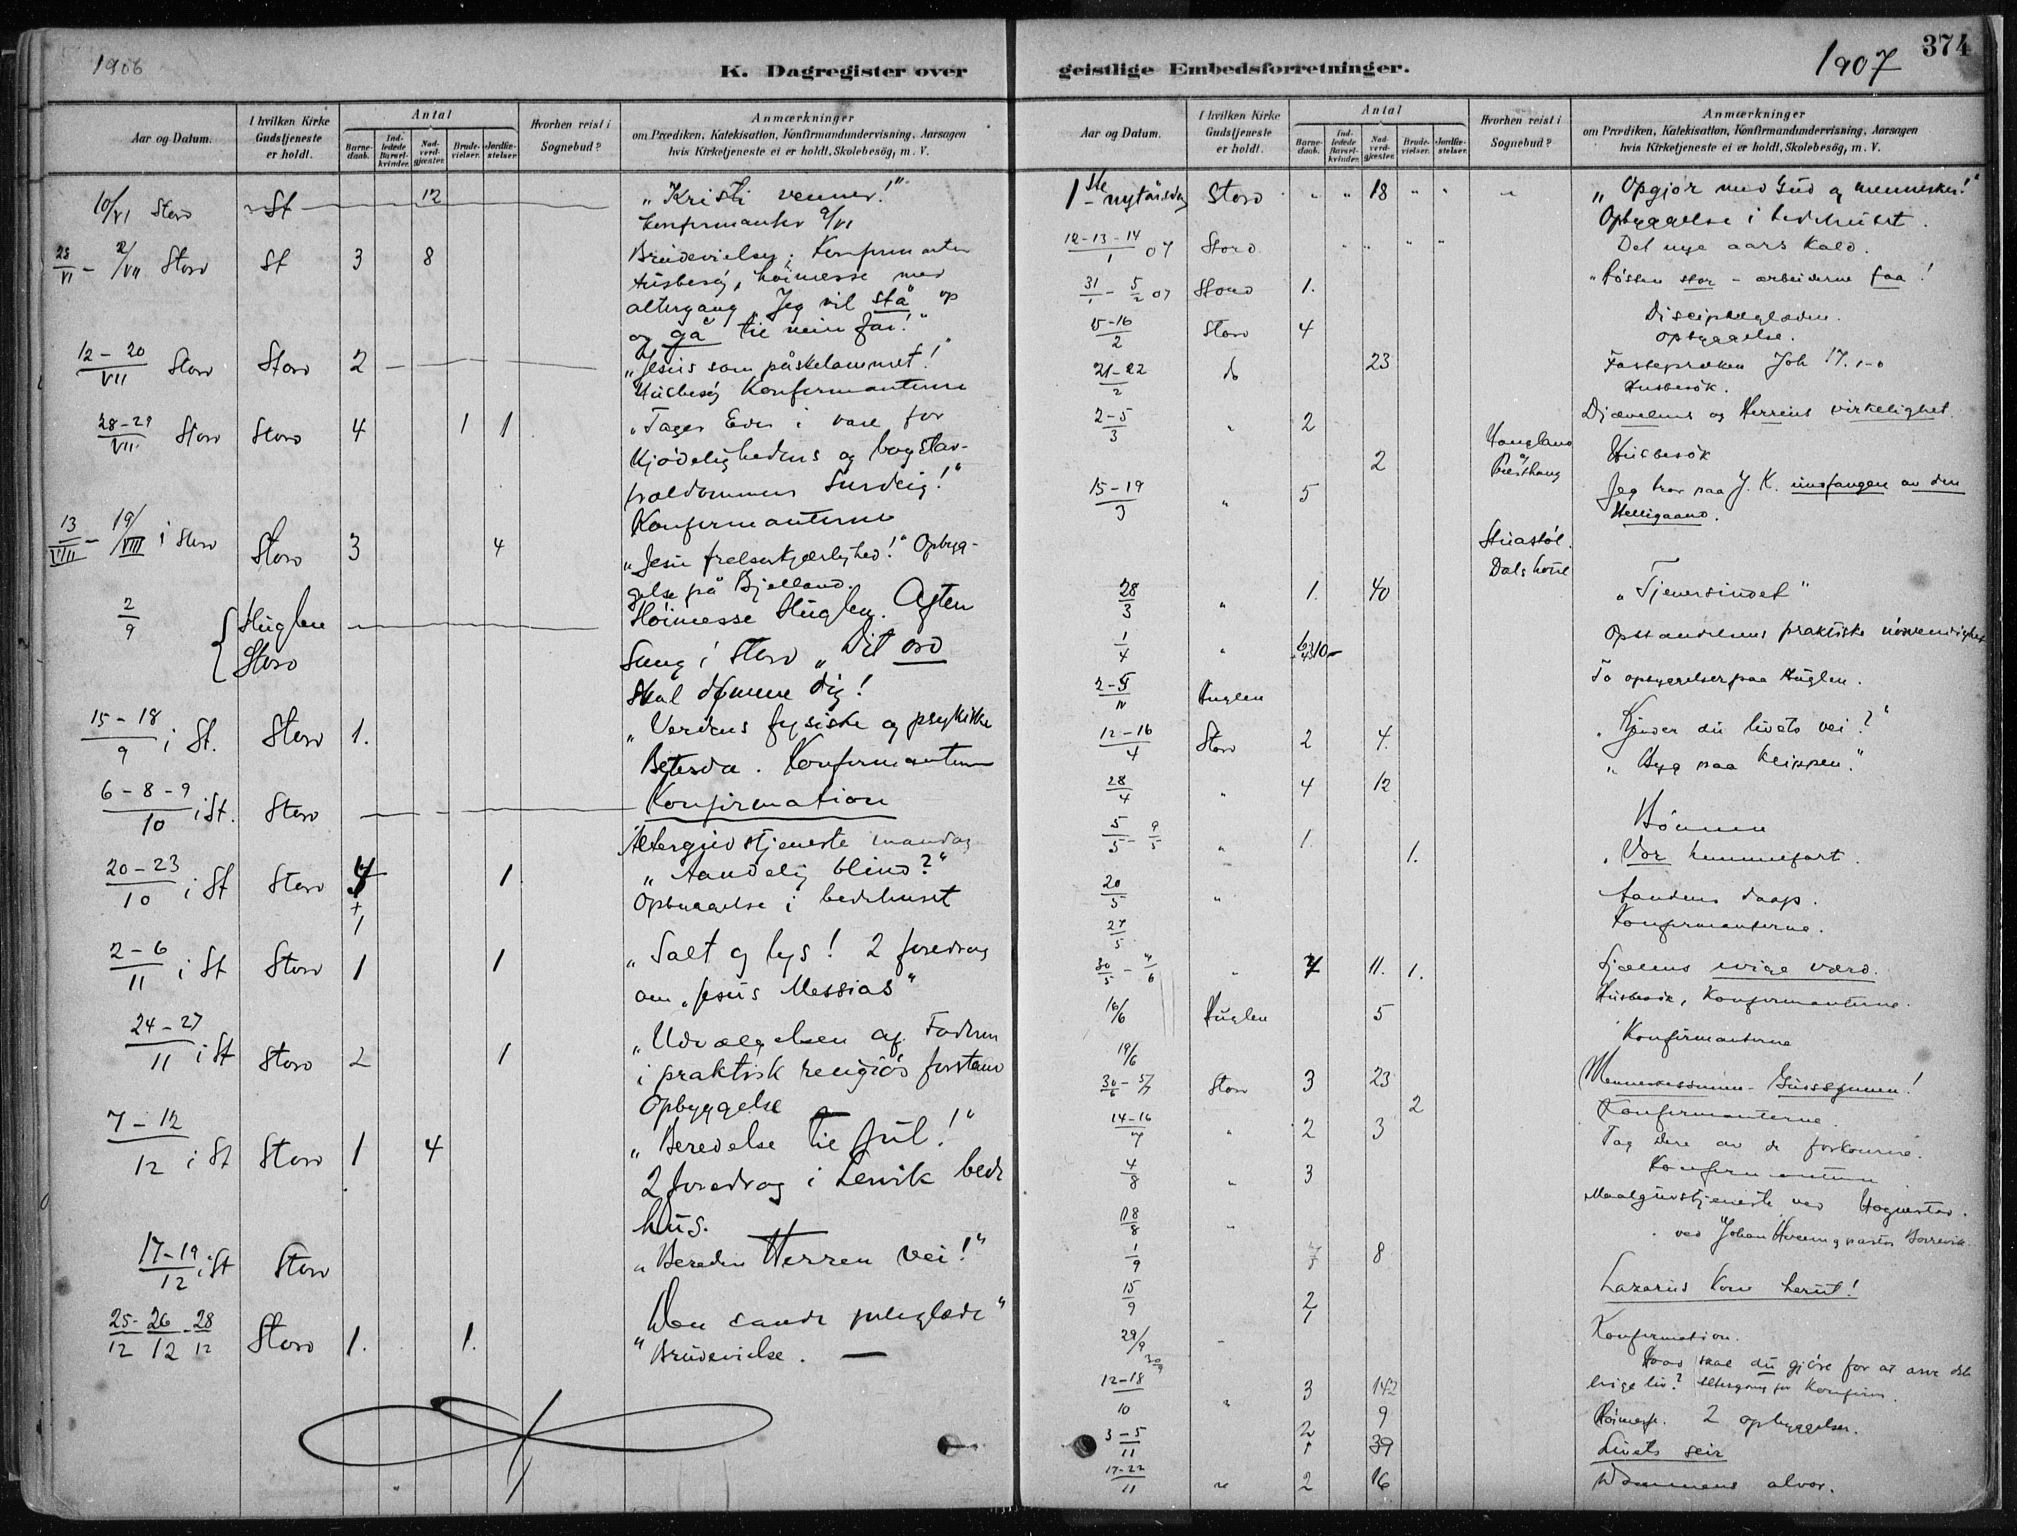 1906
K. Dagregister over
Aar og Datum.
I hvilken Kirke Gudstjeneste er holdt.
Antal
Barnedaab.
Indledede Barselkvinder.
Nadverdgjester.
Brudevielser.
Jordfæstelser
Hvorhen reist i Sognebud?
Anmærkninger
om Prædiken, Katekisation, Konfirmandundervisning, Aarsagen
hvis Kirketjeneste ei er holdt, Skolebesög, m. V.
10/VI Stord St 12 "Kristi venner!"
Konfirmanter 9/VI
28/VI - 2/VII Stord St 3 8 Brudevielse; Konfirmanter
Husbesøg, høimesse med
altergang "Jeg vil stå op
og gå til min far!"
12-20/VII Stord Stord 2 "Jesus som påskelammet!"
Husbesøg Konfirmanterne
28-29/VII Stord Stord 4 1 1 "Tager Eder i vare for
Kjødelighedens og bogstav-
trældommens Surdeig!"
Konfirmanterne
13/VIII - 19/VIII i Stord Stord 3 4 "Jesu frelserkjærlighed!" Opbyg-
gelse på Bjelland.
2/9 Huglen Høimesse Huglen. Aften
Stord Sang i Stord "Dit ord
skal dømme dig!
15-18/9 i St. Stord 1. "Verdens fysiske og psykiske
Betesda. Konfirmanterne
6-8-9/10 i St. Stord Konfirmation
Altergudstjeneste mandag
20-23/10 i St Stord 4 + 1 1 "Aandelig blind?"
Opbyggelse i bedehuset
2-6/11 i St Stord 1 1 "Salt og lys! 2 foredrag
om "Jesus Messias"
24-27/11 i St Stord 2 1 "Udvælgelsen af Faderen
i praktisk religiøs forstand
Opbyggelse
7-12/12 i St Stord 1 4 "Beredelse til Jul!"
2 foredrag i Lervik bede
hus.
17-19/12 i St Stord "Bereden Herren vei!"
25-26-28/12 12 12 Stord 1. 1. Den sande juleglæde"
"Brudevielse. —
374
1907
geistlige Embedsforretninger.
Aar og Datum.
I hvilken Kirke Gudstjeneste er holdt.
Antal
Barnedaab.
Indledede Barselkvinder.
Nadverdgjester.
Brudevielser.
Jordfæstelser.
Hvorhen reist i Sognebud?
Anmærkninger
om Prædiken, Katekisation, Konfirmandundervisning, Aarsagen
hvis Kirketjeneste ei er holdt, Skolebesög, m. V.
1ste nytårsdag Stord " " 18 " " " "Opgjør med Gud og mennesker!"
Opbyggelse i bedehuset.
12-13-14/1 07 Stord " " " " Det nye aars Kald.
31/1 - 5/2 07 Stord 1. "Høsten stor - arbeiderne faa!
15-16/2 Stord 4 Discipelglæden.
Opbyggelse.
21-22/2 do 23 Fasteprædiken Joh 17.
Husbesøk.
2-5/3 " 2 Djævelens og Herrens virkelighet.
2 Haugland og Presthaug Husbesøk
15-19/3 " 5 Jeg tror paa J. K. undfangen av den
Helligaand.
Stuastøl.
Dalskoul
28/3 " 1. 40 "Tjenersindet"
1/4 " Opstandelsens praktiske nødvendighet
2-3/IV Huglen To opbyggelser paa Huglen.
12-16/4 Stord 2 4. "Kjender du livets vei?"
28/4 " 4 12 "Byg paa klippen."
5/5 - 9/5 " 1. 1. Bönnen
"Vor himmelfart.
20/5 " Aandens daap.
27/5 Konfirmanterne.
30/5 - 4/6 " 4 11. 1. Sjælens evige værd.
Husbesøk, Konfirmanterne.
16/6 Huglen 5
19/6 Konfirmanterne
30/6 - 5/7 Stord 3 23 2 Menneskessønnen - Gudssønnen!
Konfirmanterne.
14-16/7 " 2 3 Tag dere av de forkomne.
4/8 " 3 Konfirmanterne
18/8 " Maalgudstjeneste ved Hognestad.
1/9 7 8 . ved Johan og pastor Borrevik.
15/9 2 Lazarus kom herut!
29/9 " Konfirmation.
30/9 Hvad skal du gjøre for at arve det
12-18/10 " 3 142 evige liv? Altergang for Konfirm.
9 Høimesse. 2 opbyggelser.
3-5/11 2 39 Livets seir
17-22/11 " 2 16 Dommens alvor.